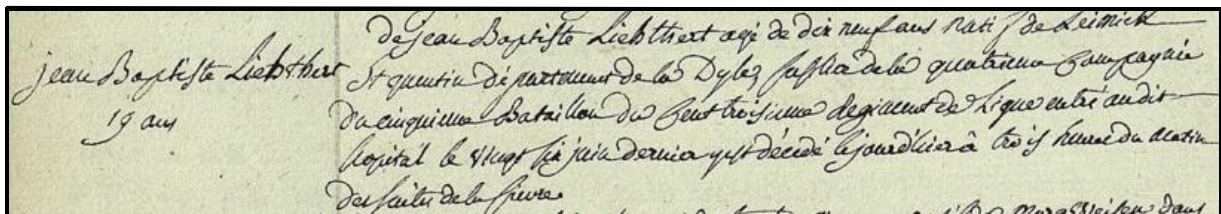 de jean Baptiste Liebthert agé de dix neuf ans natif de Leinick
jean Baptiste Liebthert
19 ans
St quentin département de la Dyle, fusilié de la quatrieme Compagnie
du cinquieme Bataillon du Cent troisieme Regiment de Ligne entré audit
hopital le vingt six juin dernier y est décédé le jourdhier à trois heures du matin
des suites de la fievre